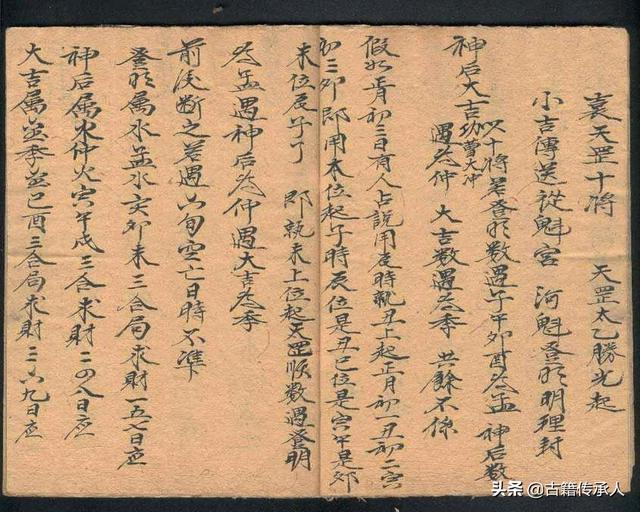 袁天罡十将　天罡太乙勝光起
小吉傳送從魁宮　河魁登明明理封
神后大吉功曹大冲　以十将若登明数遇子午卯酉為孟　神后数
遇為仲　大吉数遇為季　其餘不係
假如正月初三日有人占說用辰時執丑上起正月初一丑初二寅
初三卯　即用本位起子時辰位是丑巳位是寅午是卯
未位辰字　即執未上位起天罡順数遇登明
為孟遇神后為仲遇大吉為季
前後断之若遇六旬空亡日時不準
登明属水孟水亥卯未三合局求財一五七日应
神后属水仲火寅午戌三合求財二四八日应
大吉属並季並巳酉三合局求財三六九日应
头条 @古籍传承人